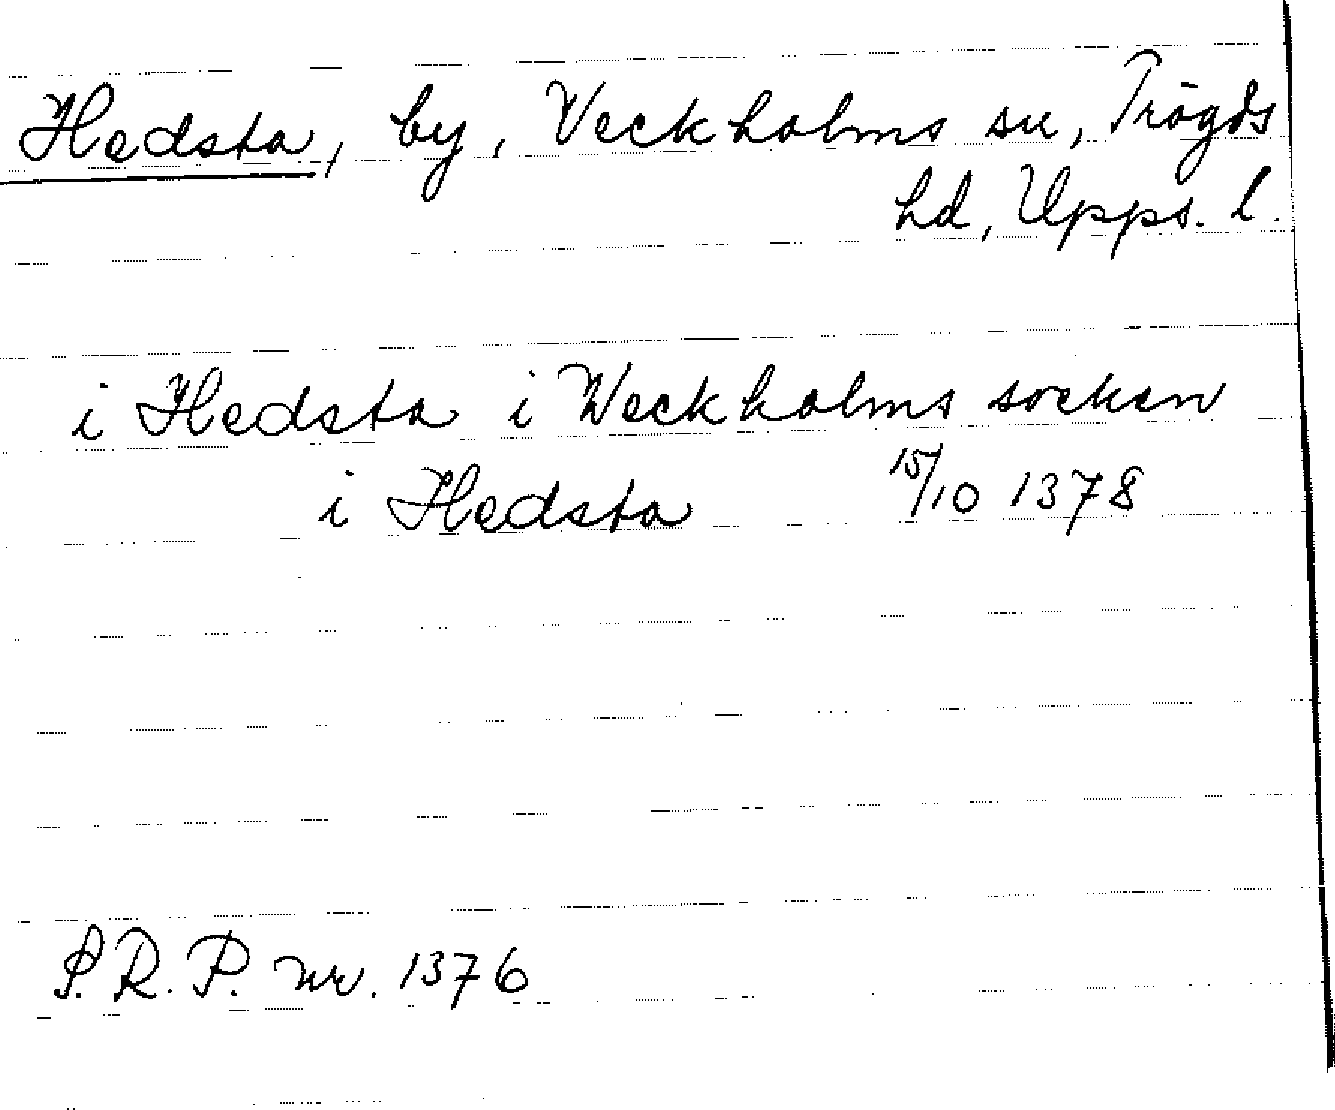 Hedsta, by, Veckholms sn, Trögds
hd, Upps. l.
i Hedsta i Weckholms socken
i Hedsta 15/10 1378
S.R.P. nr. 1376